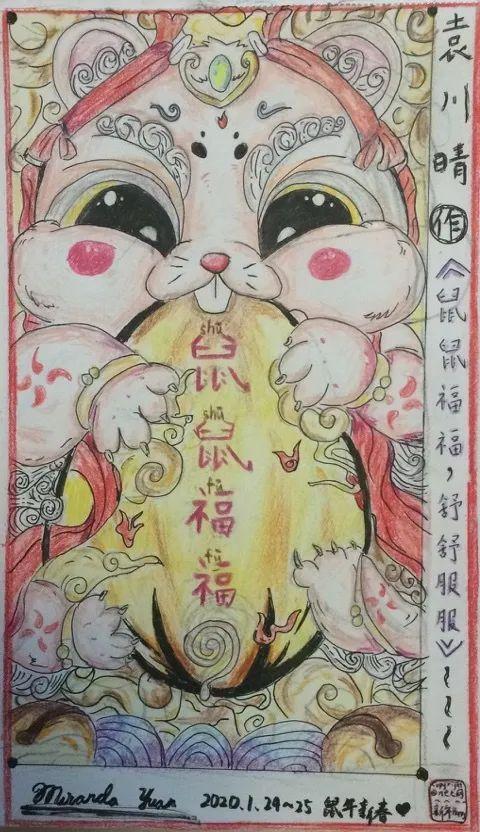 袁川晴作《鼠鼠福福，舒舒服服》~~~
shǔ
鼠
shǔ
鼠
fú
福
fú
福
Miranda Yuan 2020.1.24~25 鼠年新春♥